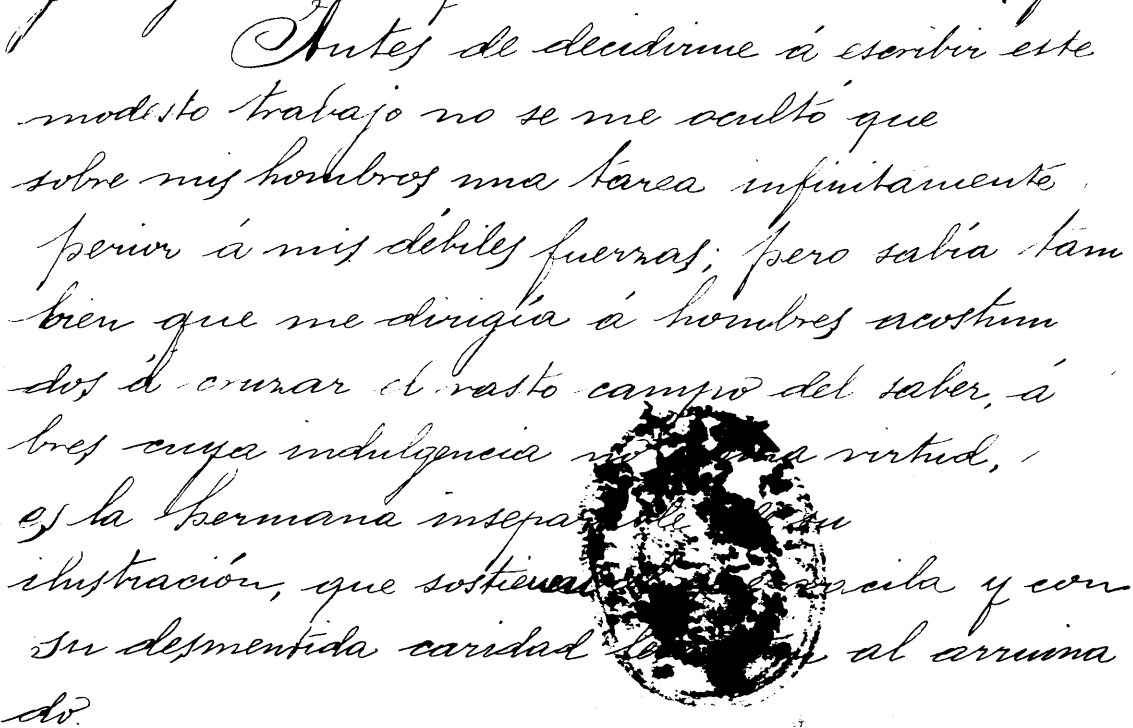 Antes de decidirme á escribir este
modesto trabajo no se me ocultó que
sobre mis hombros una tarea infinitamente
perior á mis débiles fuerzas; pero sabía tam
bien que me dirigía á hombres acostum
dos á cruzar el vasto campo del saber, á
bres cuya indulgencia no una virtud,
es la hermana inseparable su
ilustración, que sostienen vacila y con
su desmentida caridad al arruina
do.